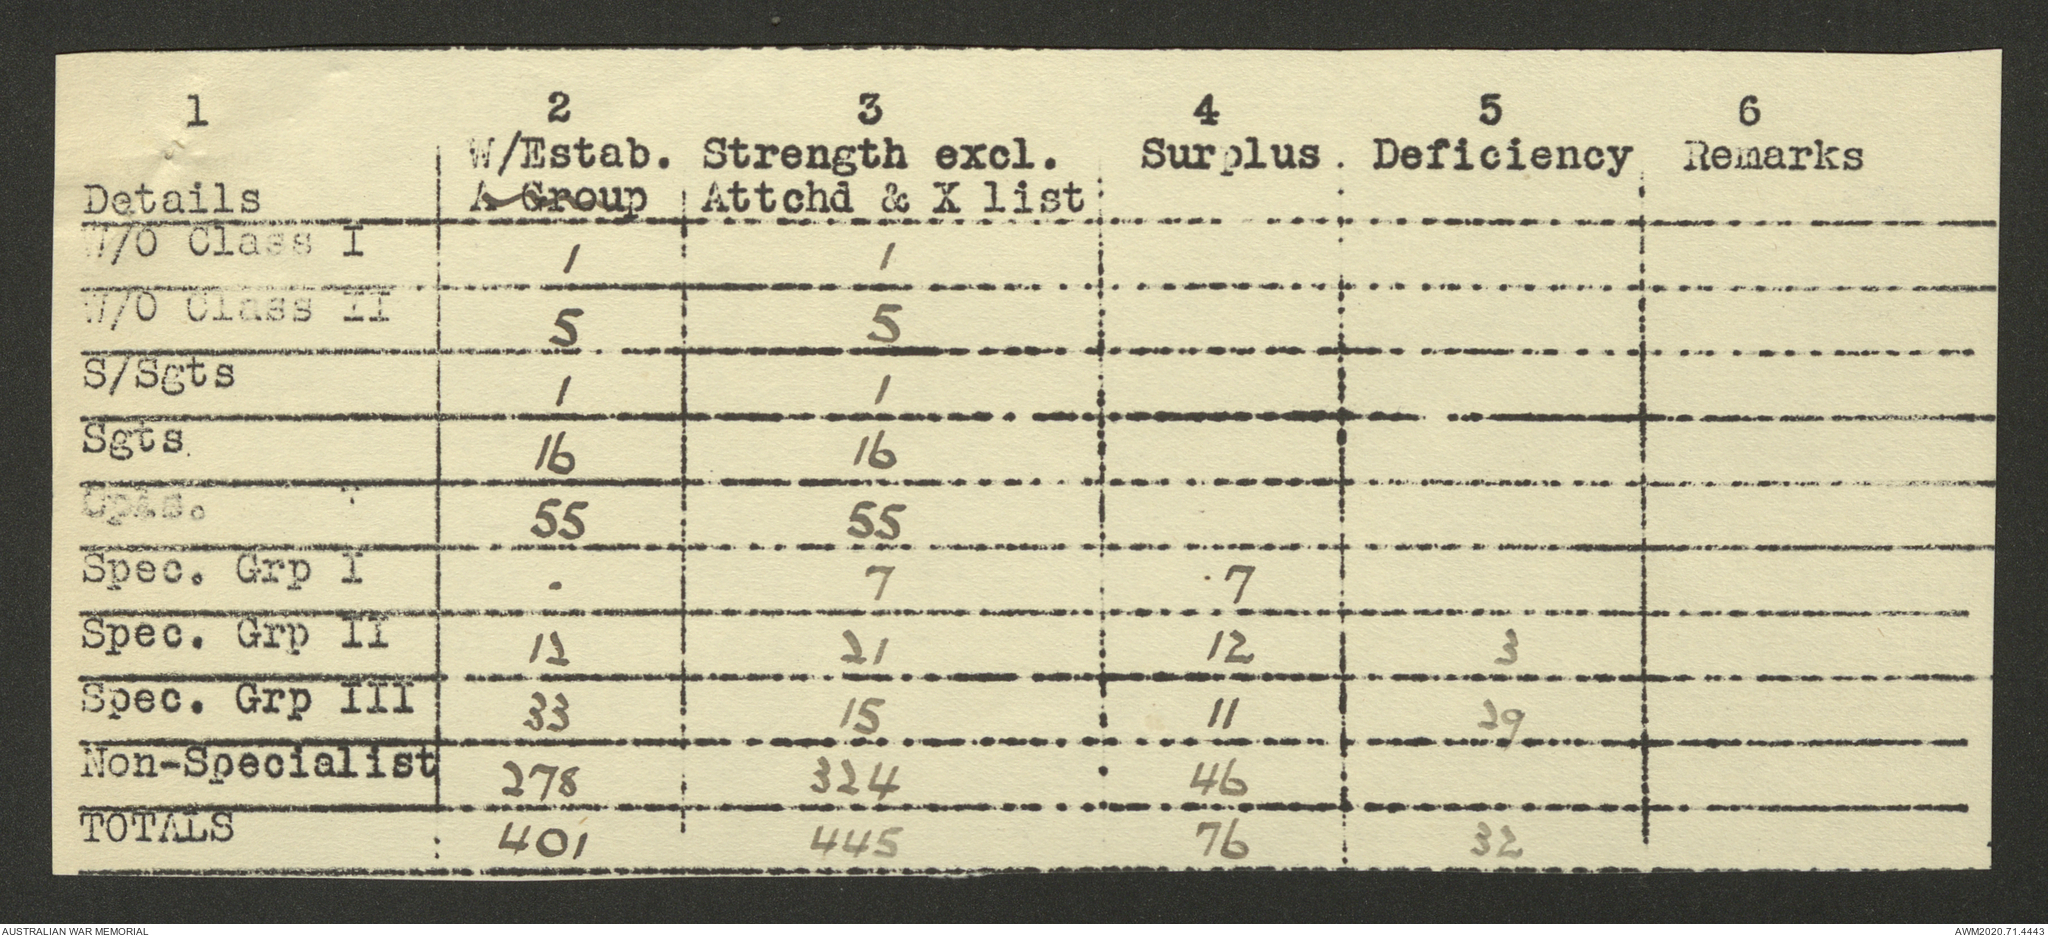 1 2 3 4 5 6
W/Estab. Strength excl. Surplus. Deficiency Remarks
Details A Group Attchd & X list
W/O Class I 1 1
W/O Class II 5 5
S/Sgts 1 1
Sgts 16 16
Cpls. 55 55
Spec. Grp I . 7 7
Spec. Grp II 12 21 12 3
Spec. Grp III 33 15 11 29
Non-Specialist 278 324 46
TOTALS 401 445 76 32
AUSTRALIAN WAR MEMORIAL AWM2020.71.4443